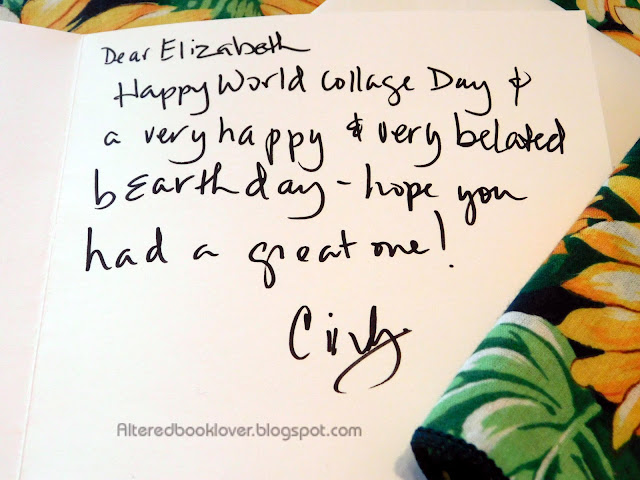 Dear Elizabeth
Happy World Collage Day &
a very happy & very belated
bEarthday - hope you
had a great one!
Cindy
Alteredbooklover.blogspot.com